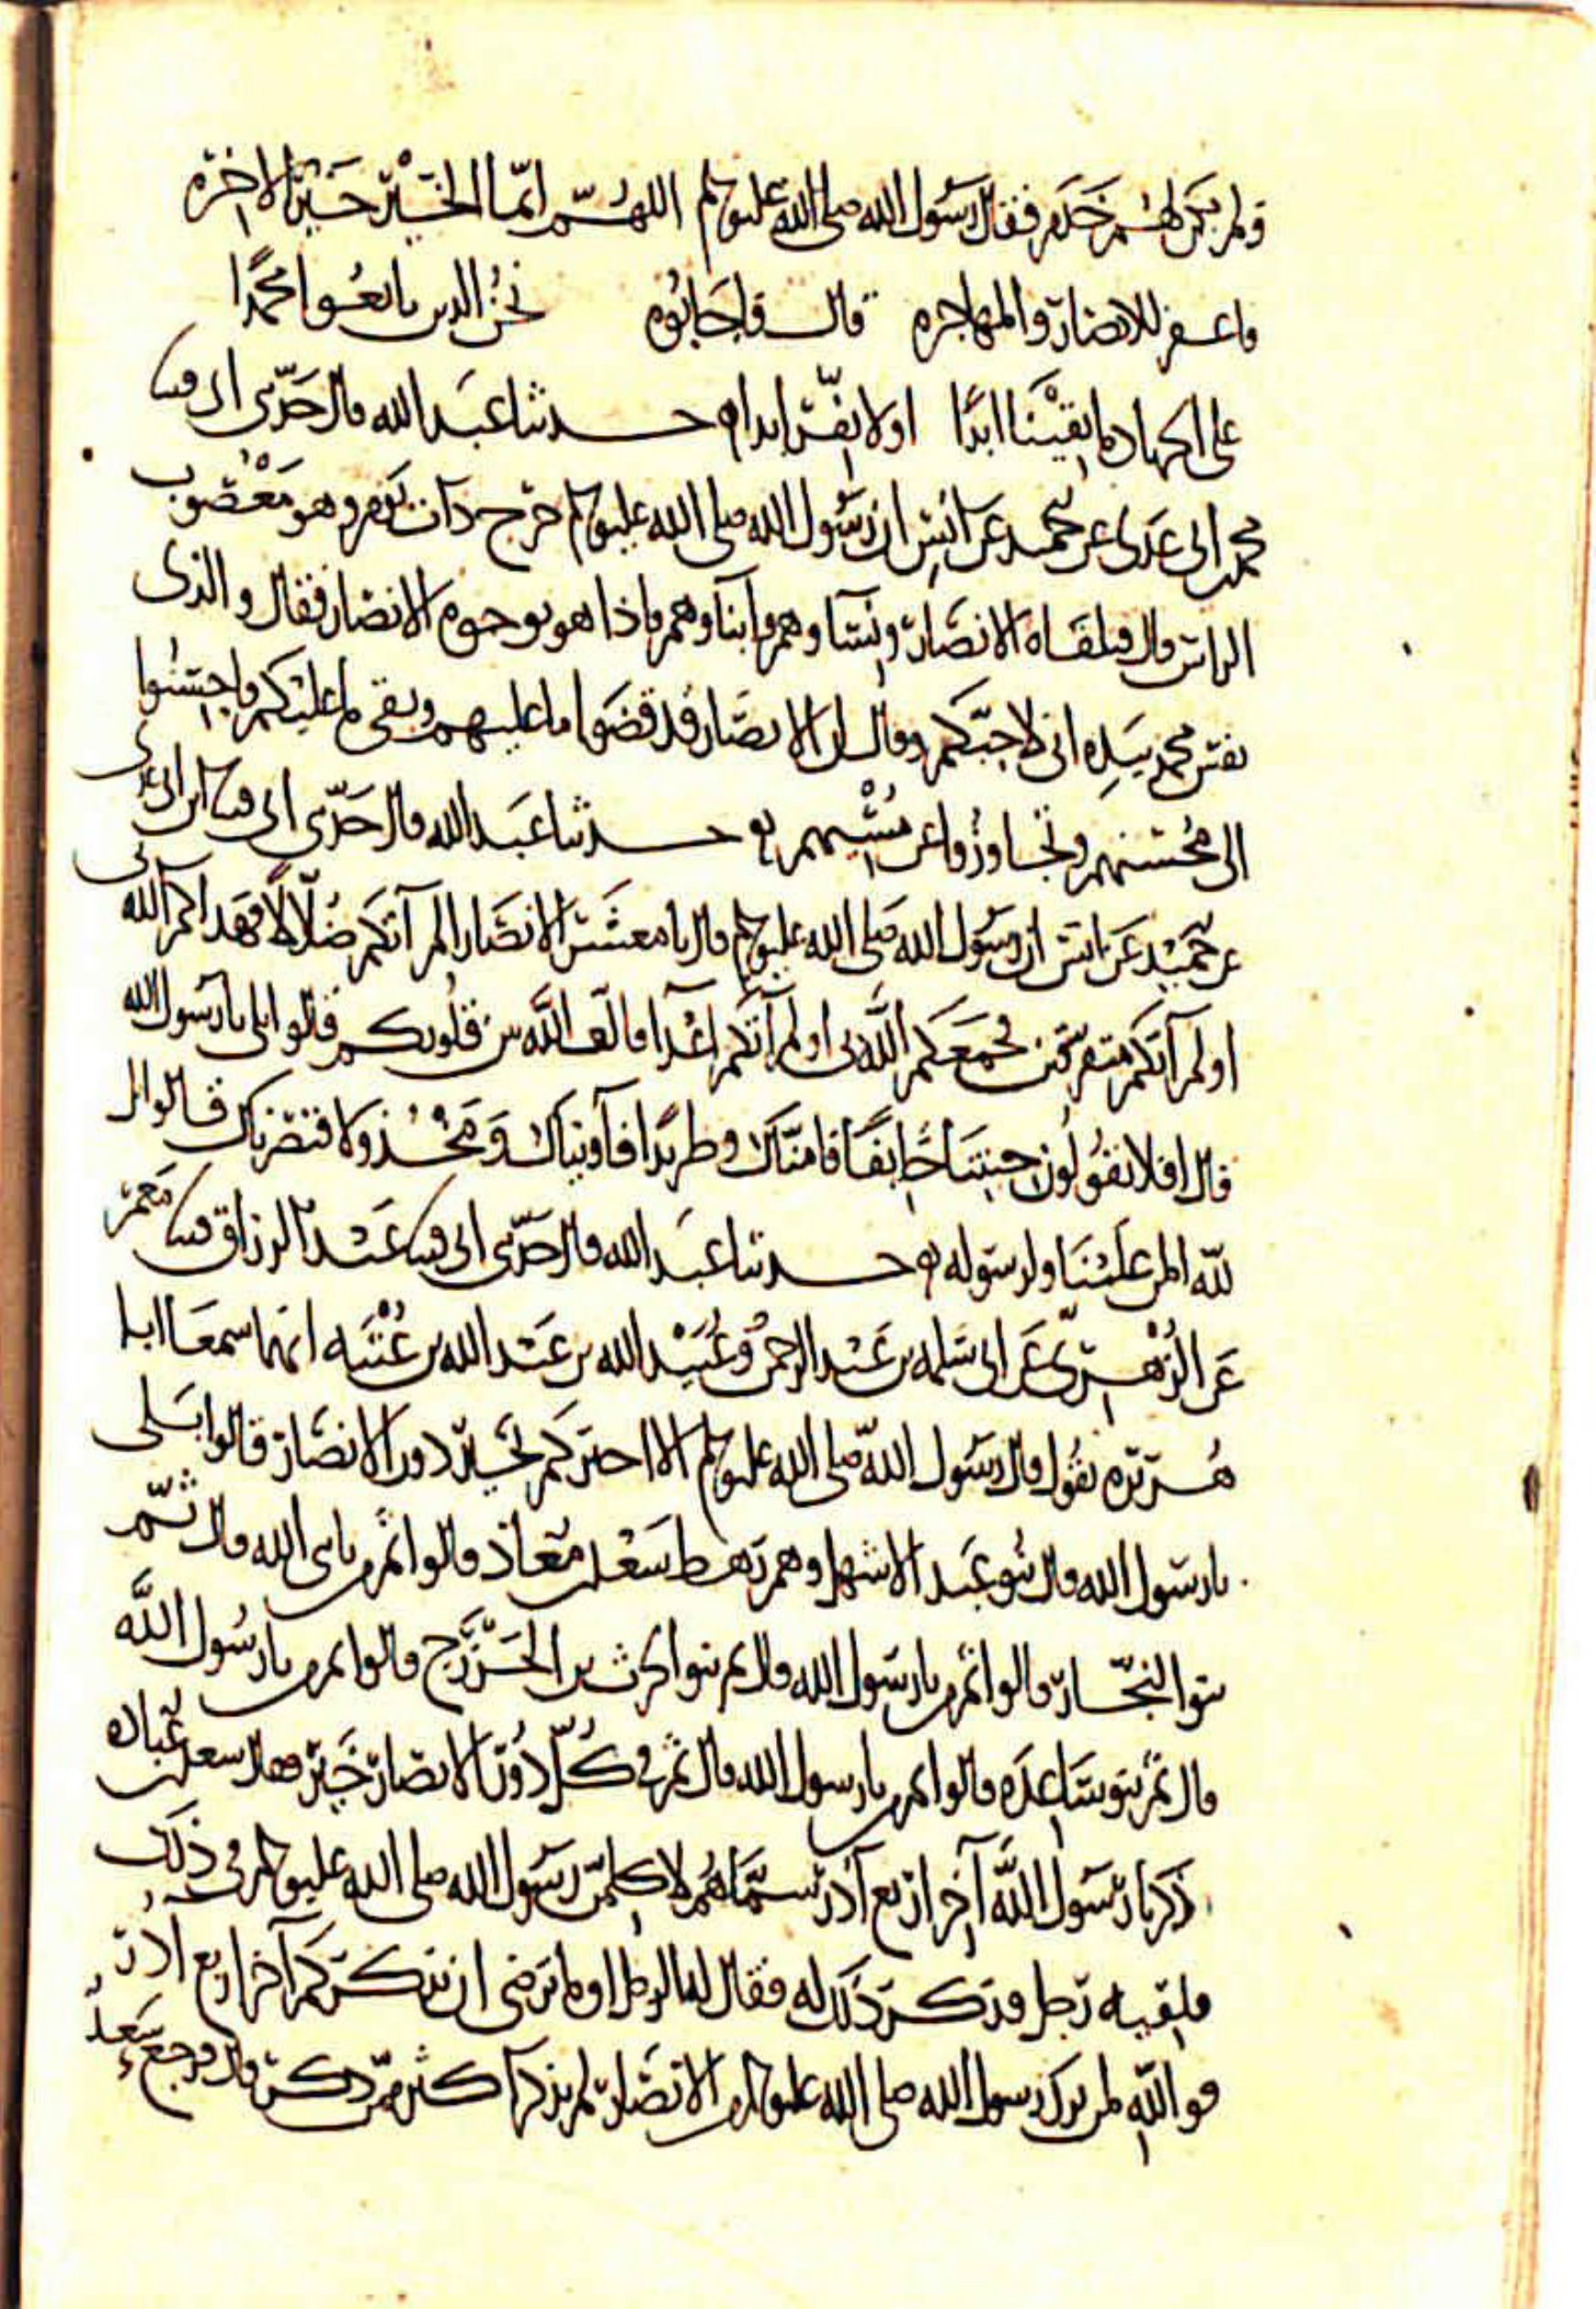 ولم يكن لهم خدم فقال رسول الله صلى الله عليه وسلم اللهم انما الخير خير الاخره
فاغفر للانصار والمهاجره قال فاجابوه نحن الذين بايعوا محمدا
على الجهاد ما بقينا ابدا او لا نفر ابدا حدثنا عبد الله قال حدثني ابي قثنا
محمد بن ابي عدي عن حميد عن انس ان رسول الله صلى الله عليه وسلم خرج ذات يوم وهو معصوب
الراس قال فتلقاه الانصار ونساوهم وابناوهم فاذا هو بوجوه الانصار فقال والذي
نفس محمد بيده اني لاحبكم وقال ان الانصار قد قضوا ما عليهم وبقي ما عليكم فاحسنوا
الى محسنهم وتجاوزوا عن مسيهم حدثنا عبد الله قال حدثني ابي قثنا ابن ابي عدي
عن حميد عن انس ان رسول الله صلى الله عليه وسلم قال يا معشر الانصار الم آتكم ضلالا فهداكم الله بي
اولم آتكم متفرقين فجمعكم الله بي اولم آتكم اعدآ فالف الله بين قلوبكم قالوا بلى يا رسول الله
قال افلا تقولون جيتنا خايفا فامناك وطريدا فآويناك ومخذولا فنصرناك فقالوا بل
لله المن علينا ولرسوله حدثنا عبد الله قال حدثني ابي قثنا عبد الرزاق قثنا معمر
عن الزهري عن ابي سلمه بن عبد الرحمن وعبيد الله بن عبد الله بن عتبه انهما سمعا ابا
هريره يقول قال رسول الله صلى الله عليه وسلم الا اخبركم بخير دور الانصار قالوا بلى
يا رسول الله قال بنو عبد الاشهل وهم رهط سعد بن معاذ قالوا ثم من يا نبي الله قال ثم
بنوا النجار قالوا ثم من يا رسول الله قال ثم بنوا الحرث بن الخزرج قالوا ثم من يا رسول الله
قال ثم بنو ساعده قالوا ثم من يا رسول الله قال ثم في كل دور الانصار خير فقال سعد بن عباده
ذكرنا رسول الله آخر اربع آدر سماهم لاكلمن رسول الله صلى الله عليه وسلم في ذلك
فلقيه رجل فذكر ذلك له فقال له الرجل اوما ترضى ان يذكركم آخر اربع آدر
فوالله لمن ترك رسول الله صلى الله عليه وسلم من الانصار لم يذكر اكثر ممن ذكر قال فرجع سعد